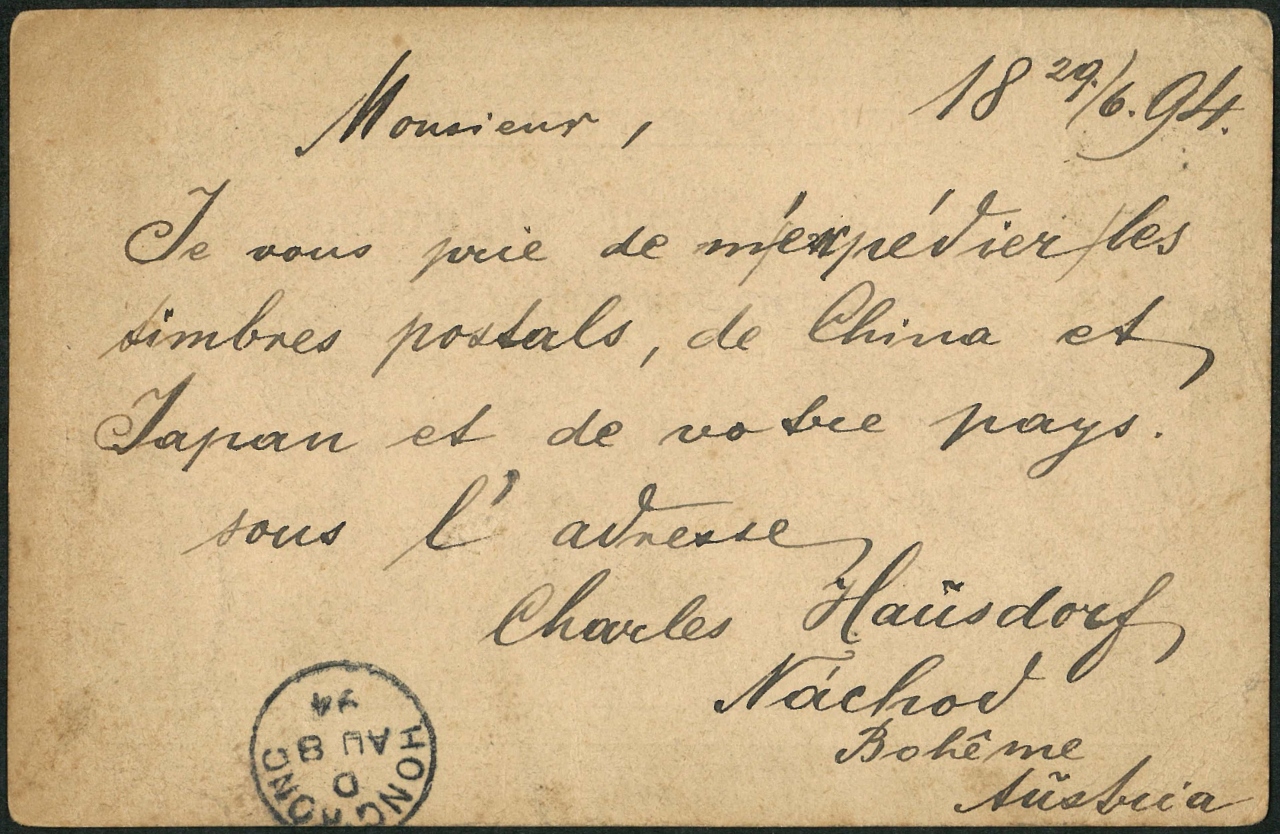 18 29./6. 94.
Monsieur,
Je vous prie de m'expédier les
timbres postals, de China et
Japan et de votre pays.
sous l' adresse
Charles Haŭsdorf
Náchod
Bohême
Aŭstria
HONG KONG
D
AU 8
94